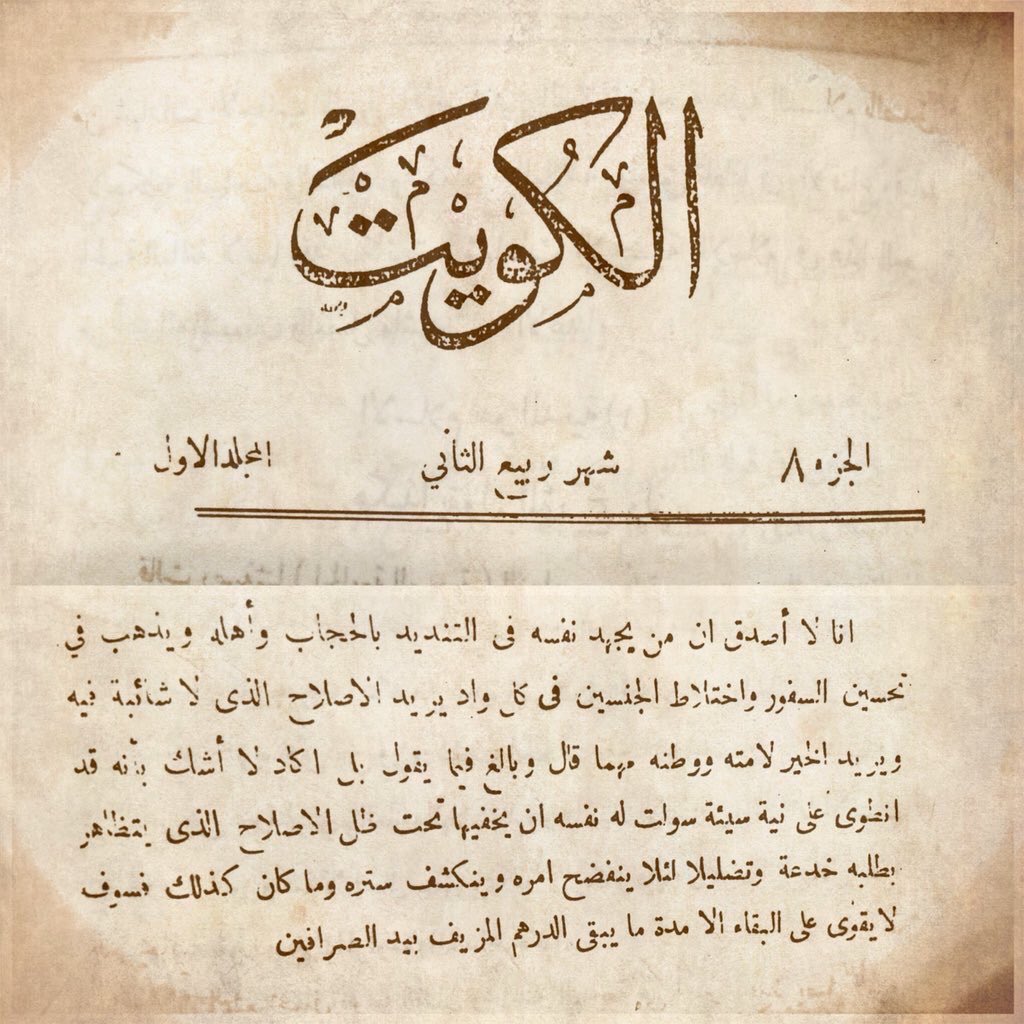 الكويت
الجزء ٨ شهر ربيع الثاني المجلد الاول
انا لا أصدق ان من يجهد نفسه فى التنديد بالحجاب وأهله ويذهب في
تحسين السفور واختلاط الجنسين فى كل واد يريد الاصلاح الذى لا شائبة فيه
ويريد الخير لامته ووطنه مهما قال وبالغ فيما يقول بل اكاد لا أشك بأنه قد
انطوى على نية سيئة سوات له نفسه ان يخفيها تحت ظل الاصلاح الذى يتظاهر
بطلبه خدعة وتضليلا لئلا ينفضح امره وينكشف ستره وما كان كذلك فسوف
لا يقوى على البقاء الا مدة ما يبقى الدرهم المزيف بيد الصرافين